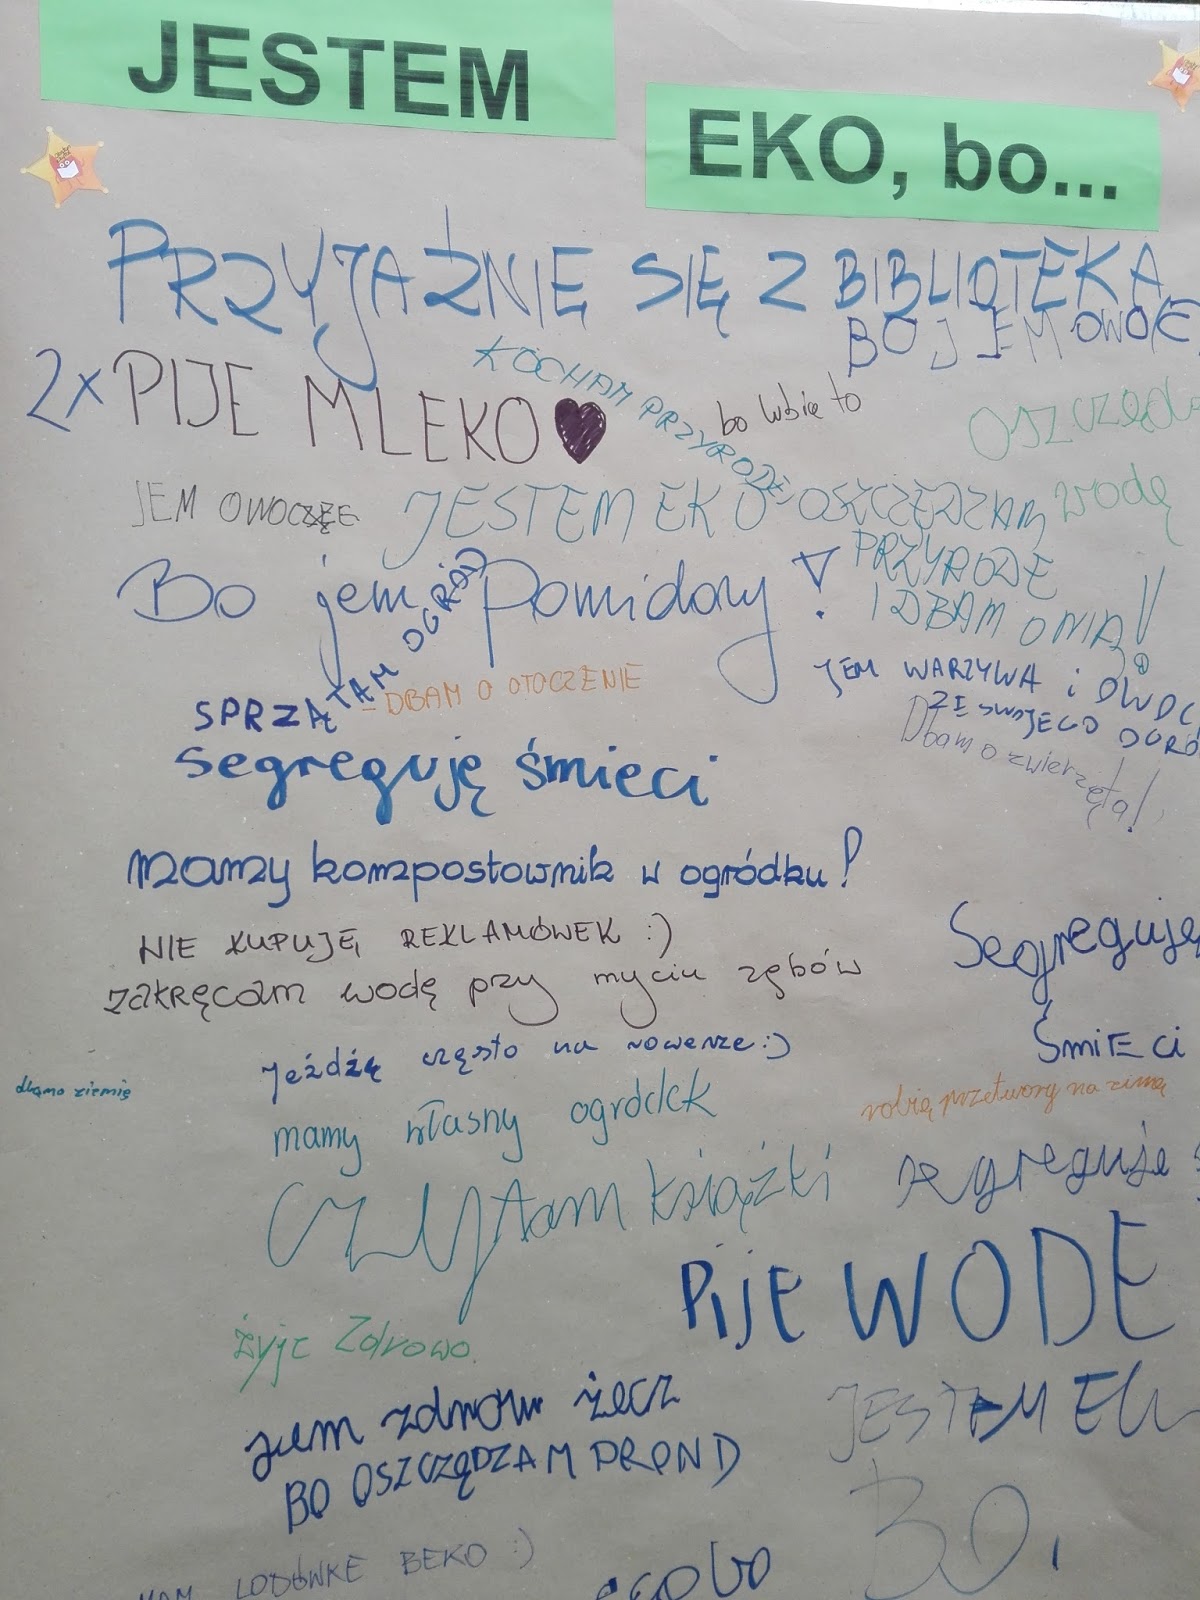 JESTEM
EKO, bo...
PRZYJAŹNIĘ SIĘ Z BIBLIOTEKĄ
BO JEM OWOCE
2x PIJE MLEKO
KOCHAM PRZYRODĘ
bo lubię to
JEM OWOCE
JESTEM EKO OSZCZĘDZAM
wodę
PRZYRODĘ
I DBAM O NIĄ!
Bo jem pomidory!
SPRZĄTAM OGRÓD
- DBAM O OTOCZENIE
JEM WARZYWA i OWOC
ZE SWOJEGO OGRÓ
Dbam o zwierzęta!
segreguję śmieci
mamy kompostownik w ogródku!
NIE KUPUJĘ REKLAMÓWEK :)
zakręcam wodę przy myciu zębów
Segreguję
ŚmiEci
Jeżdżę często na rowerze :)
dbamo ziemię
robię przetwory na zimę
mamy własny ogródek
czytam książki
segreguje
PIJE WODE
żyje Zdrowo
jem zdrow żecz
BO OSZCZĘDZAM PROND
JESTEM
BO,
MAM LODÓWKE BEKO :)